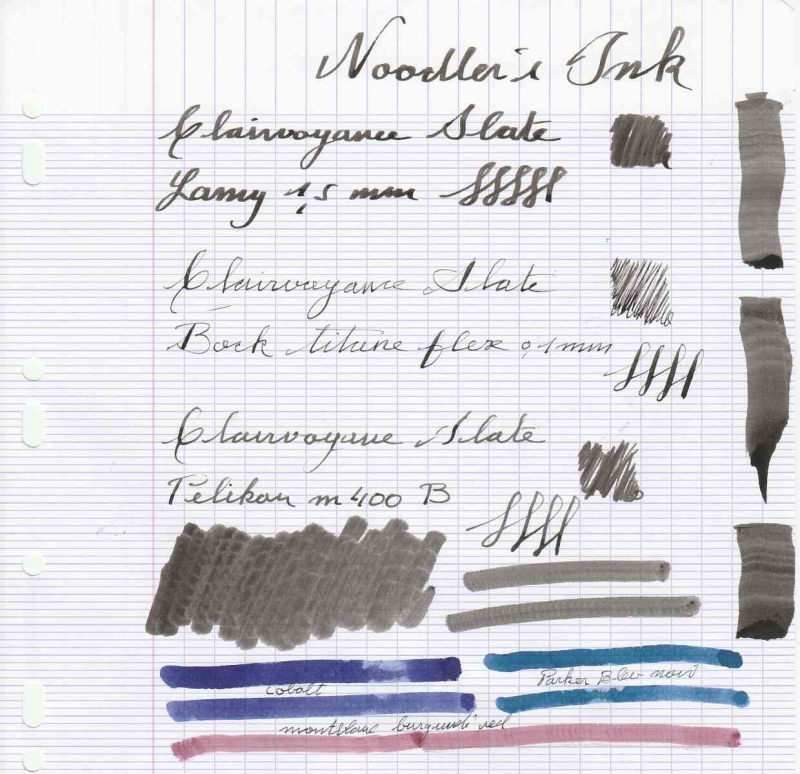 Noodler's Ink
Clairvoyance Slate
Lamy 1,5 mm
Clairvoyance Slate
Bock titane flex 0,1mm
Clairvoyance Slate
Pelikan m400 B
cobalt
Parker Bleu noir
montblanc burgundi red